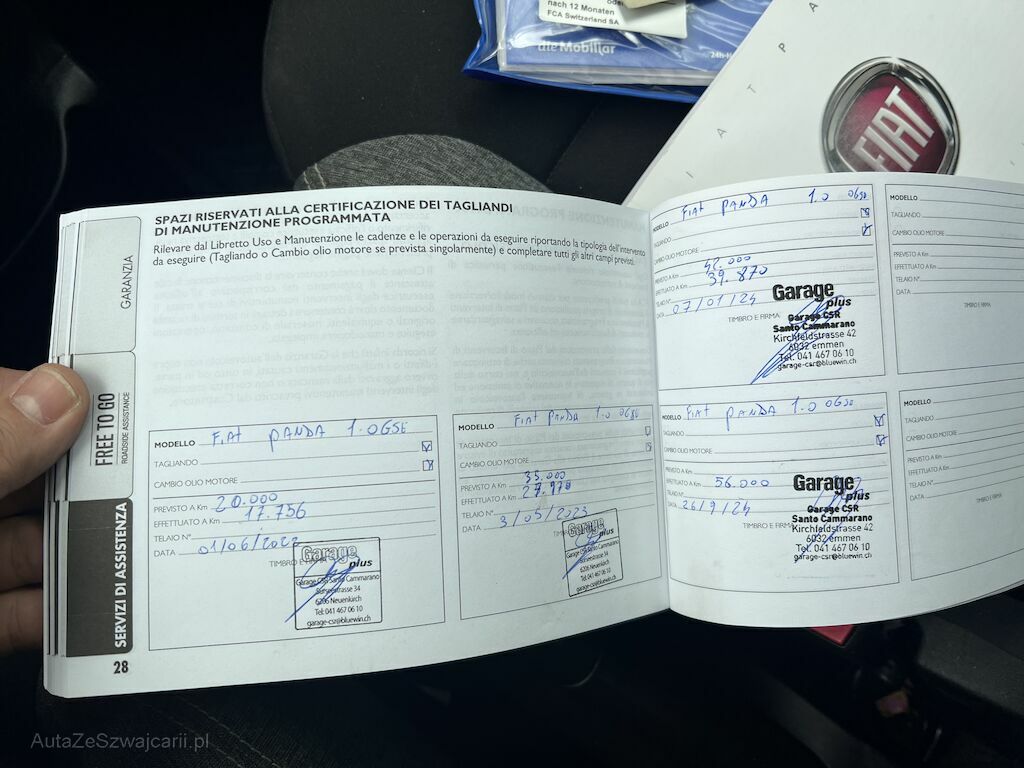 nach 12 Monaten
FCA Switzerland SA
die Mobiliar
24h-H
FIAT
SPAZI RISERVATI ALLA CERTIFICAZIONE DEI TAGLIANDI
DI MANUTENZIONE PROGRAMMATA
Rilevare dal Libretto Uso e Manutenzione le cadenze e le operazioni da eseguire riportando la tipologia dell'intervento
da eseguire (Tagliando o Cambio olio motore se prevista singolarmente) e completare tutti gli altri campi previsti.
GARANZIA
FREE TO GO
ROADSIDE ASSISTANCE
SERVIZI DI ASSISTENZA
28
MODELLO FIAT PANDA 1.0 GSE
TAGLIANDO
CAMBIO OLIO MOTORE
PREVISTO A Km 20.000
EFFETTUATO A Km 17.756
TELAIO N°
DATA 01/06/2022
TIMBRO E FIRMA
Garage
plus
Garage CSR Santo Cammarano
Surseestrasse 34
6206 Neuenkirch
Tel: 041 467 06 10
garage-csr@bluewin.ch
MODELLO FIAT PANDA 1.0
TAGLIANDO
CAMBIO OLIO MOTORE
PREVISTO A Km 35.000
EFFETTUATO A Km
TELAIO N°
DATA 3/05/2023
Garage
plus
Garage CSR Santo Cammarano
Surseestrasse 34
6206 Neuenkirch
Tel: 041 467 06 10
garage-csr@bluewin.ch
FIAT PANDA 1.0
TAGLIANDO
CAMBIO OLIO MOTORE
PREVISTO A Km 42.000
EFFETTUATO A Km 39.870
TELAIO N°
DATA 07/01/24
TIMBRO E FIRMA
Garage
plus
Garage CSR
Santo Cammarano
Kirchfeldstrasse 42
6032 emmen
Tel. 041 467 06 10
garage-csr@bluewin.ch
MODELLO FIAT PANDA 1.0
TAGLIANDO
CAMBIO OLIO MOTORE
PREVISTO A Km
EFFETTUATO A Km 56.000
TELAIO N°
DATA 26/9/24
Garage
plus
Garage CSR
Santo Cammarano
Kirchfeldstrasse 42
6032 emmen
Tel. 041 467 06 10
garage-csr@bluewin.ch
MODELLO
TAGLIANDO
CAMBIO OLIO MOTORE
PREVISTO A Km
EFFETTUATO A Km
TELAIO N°
DATA
TIMBRO E FIRMA
MODELLO
TAGLIANDO
CAMBIO OLIO MOTORE
PREVISTO A Km
EFFETTUATO A Km
TELAIO N°
DATA
TIMBRO E FIRMA
AutaZeSzwajcarii.pl